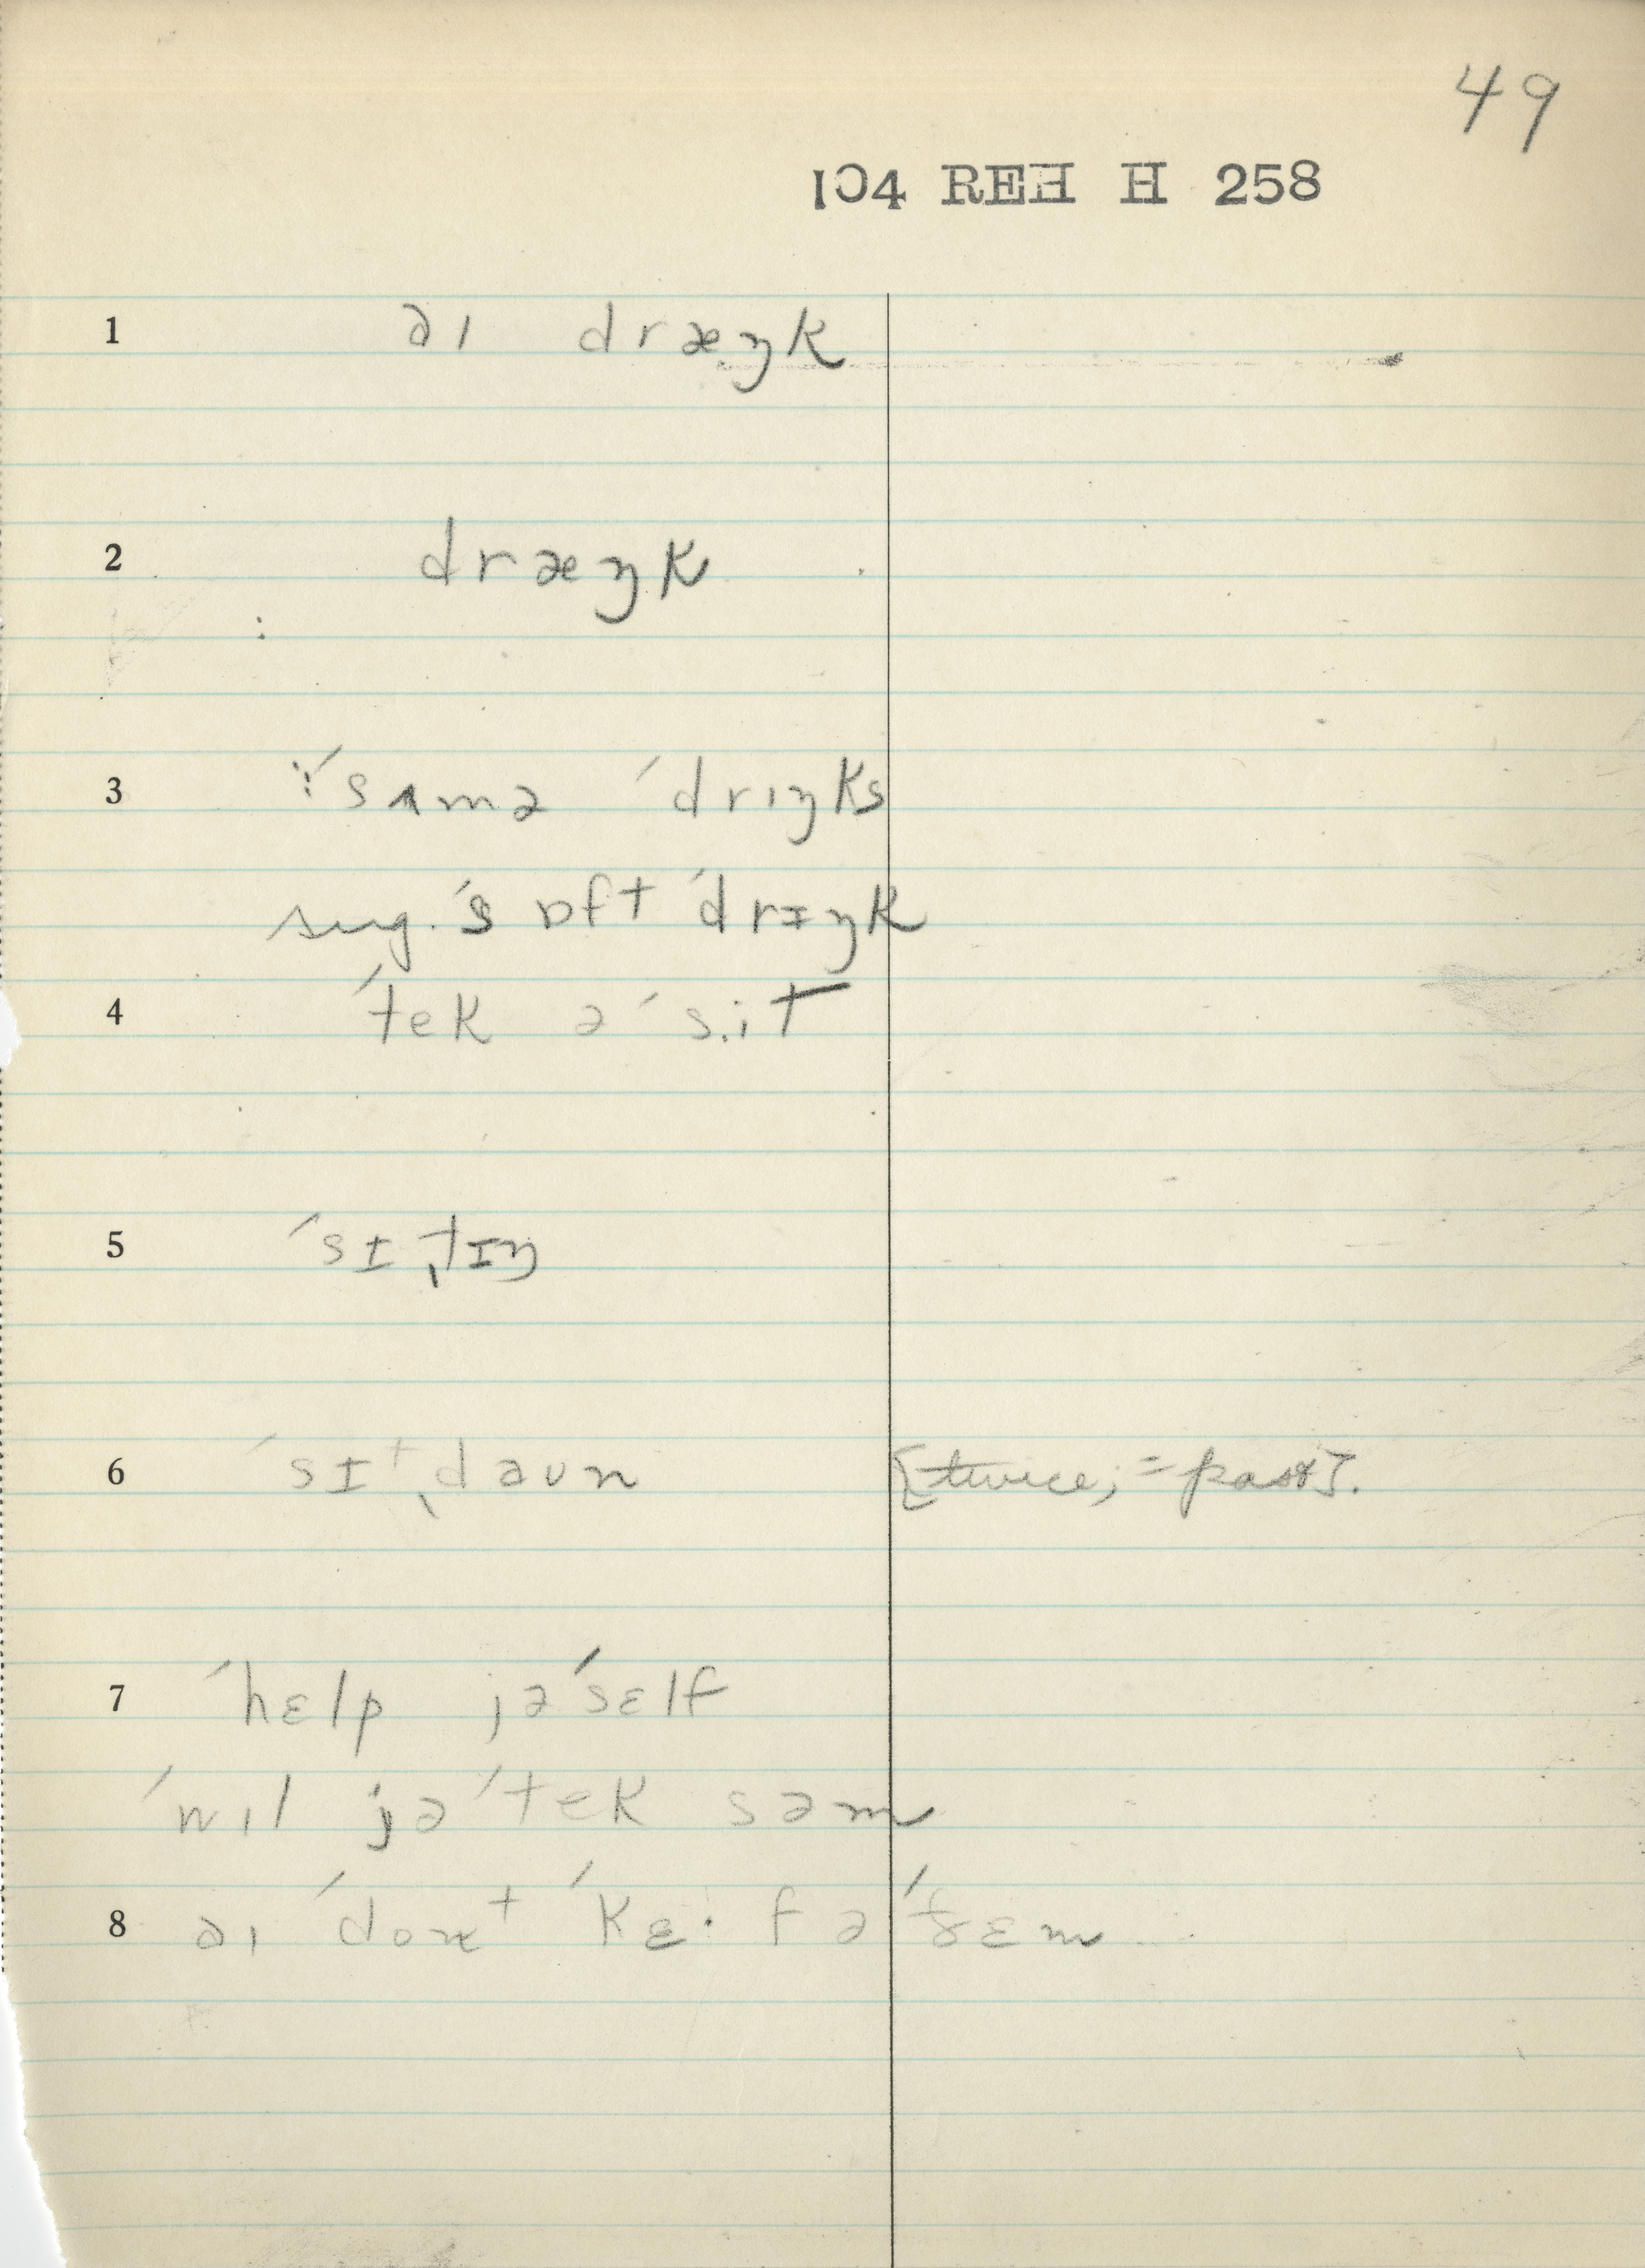 49
104 REH H 258
1 aɪ dræŋk
2 dræŋk
3 ⁝ˈsʌmə ˈdrɪŋks
sug. ˈsɒft ˈdrɪŋk
4 ˈtek ə ˈs.it
5 ˈsɪˌtɪŋ
6 ˈsɪᵗˌdaʊn [twice; = past].
7 ˈhɛlp jəˈsɛlf
ˈwɪl jəˈtek səm
8 aɪ ˈdonᵗ ˈkɛ· fəˈðɛm